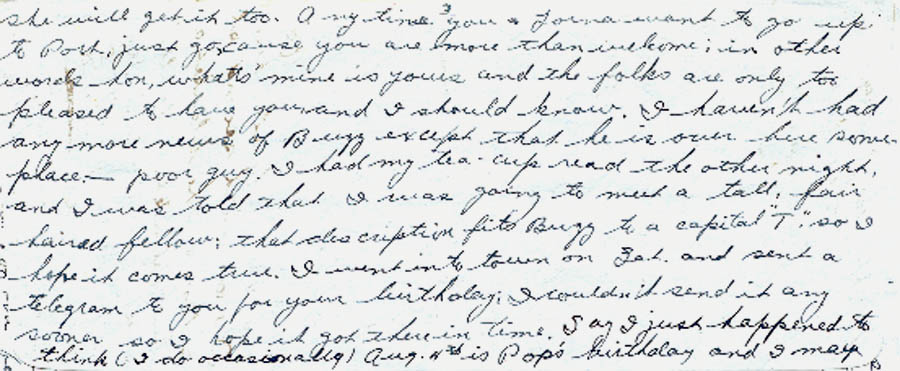 she will get it too. Any time you & Jorna want to go up
to Port, just go, cause you are more than welcome; in other
words hon, what's mine is yours and the folks are only too
pleased to have you and I should know. I haven't had
any more news of Bugg except that he is over here some-
place — poor guy. I had my tea-cup read the other night,
and I was told that I was going to meet a tall, fair
haired fellow; that description fits Bugg to a capital "T" so I
hope it comes true. I went into town on Sat. and sent a
telegram to you for your birthday; I couldn't send it any
sooner so I hope it got there in time. Say I just happened to
think (I do occasionally) Aug. is Pop's birthday and I may